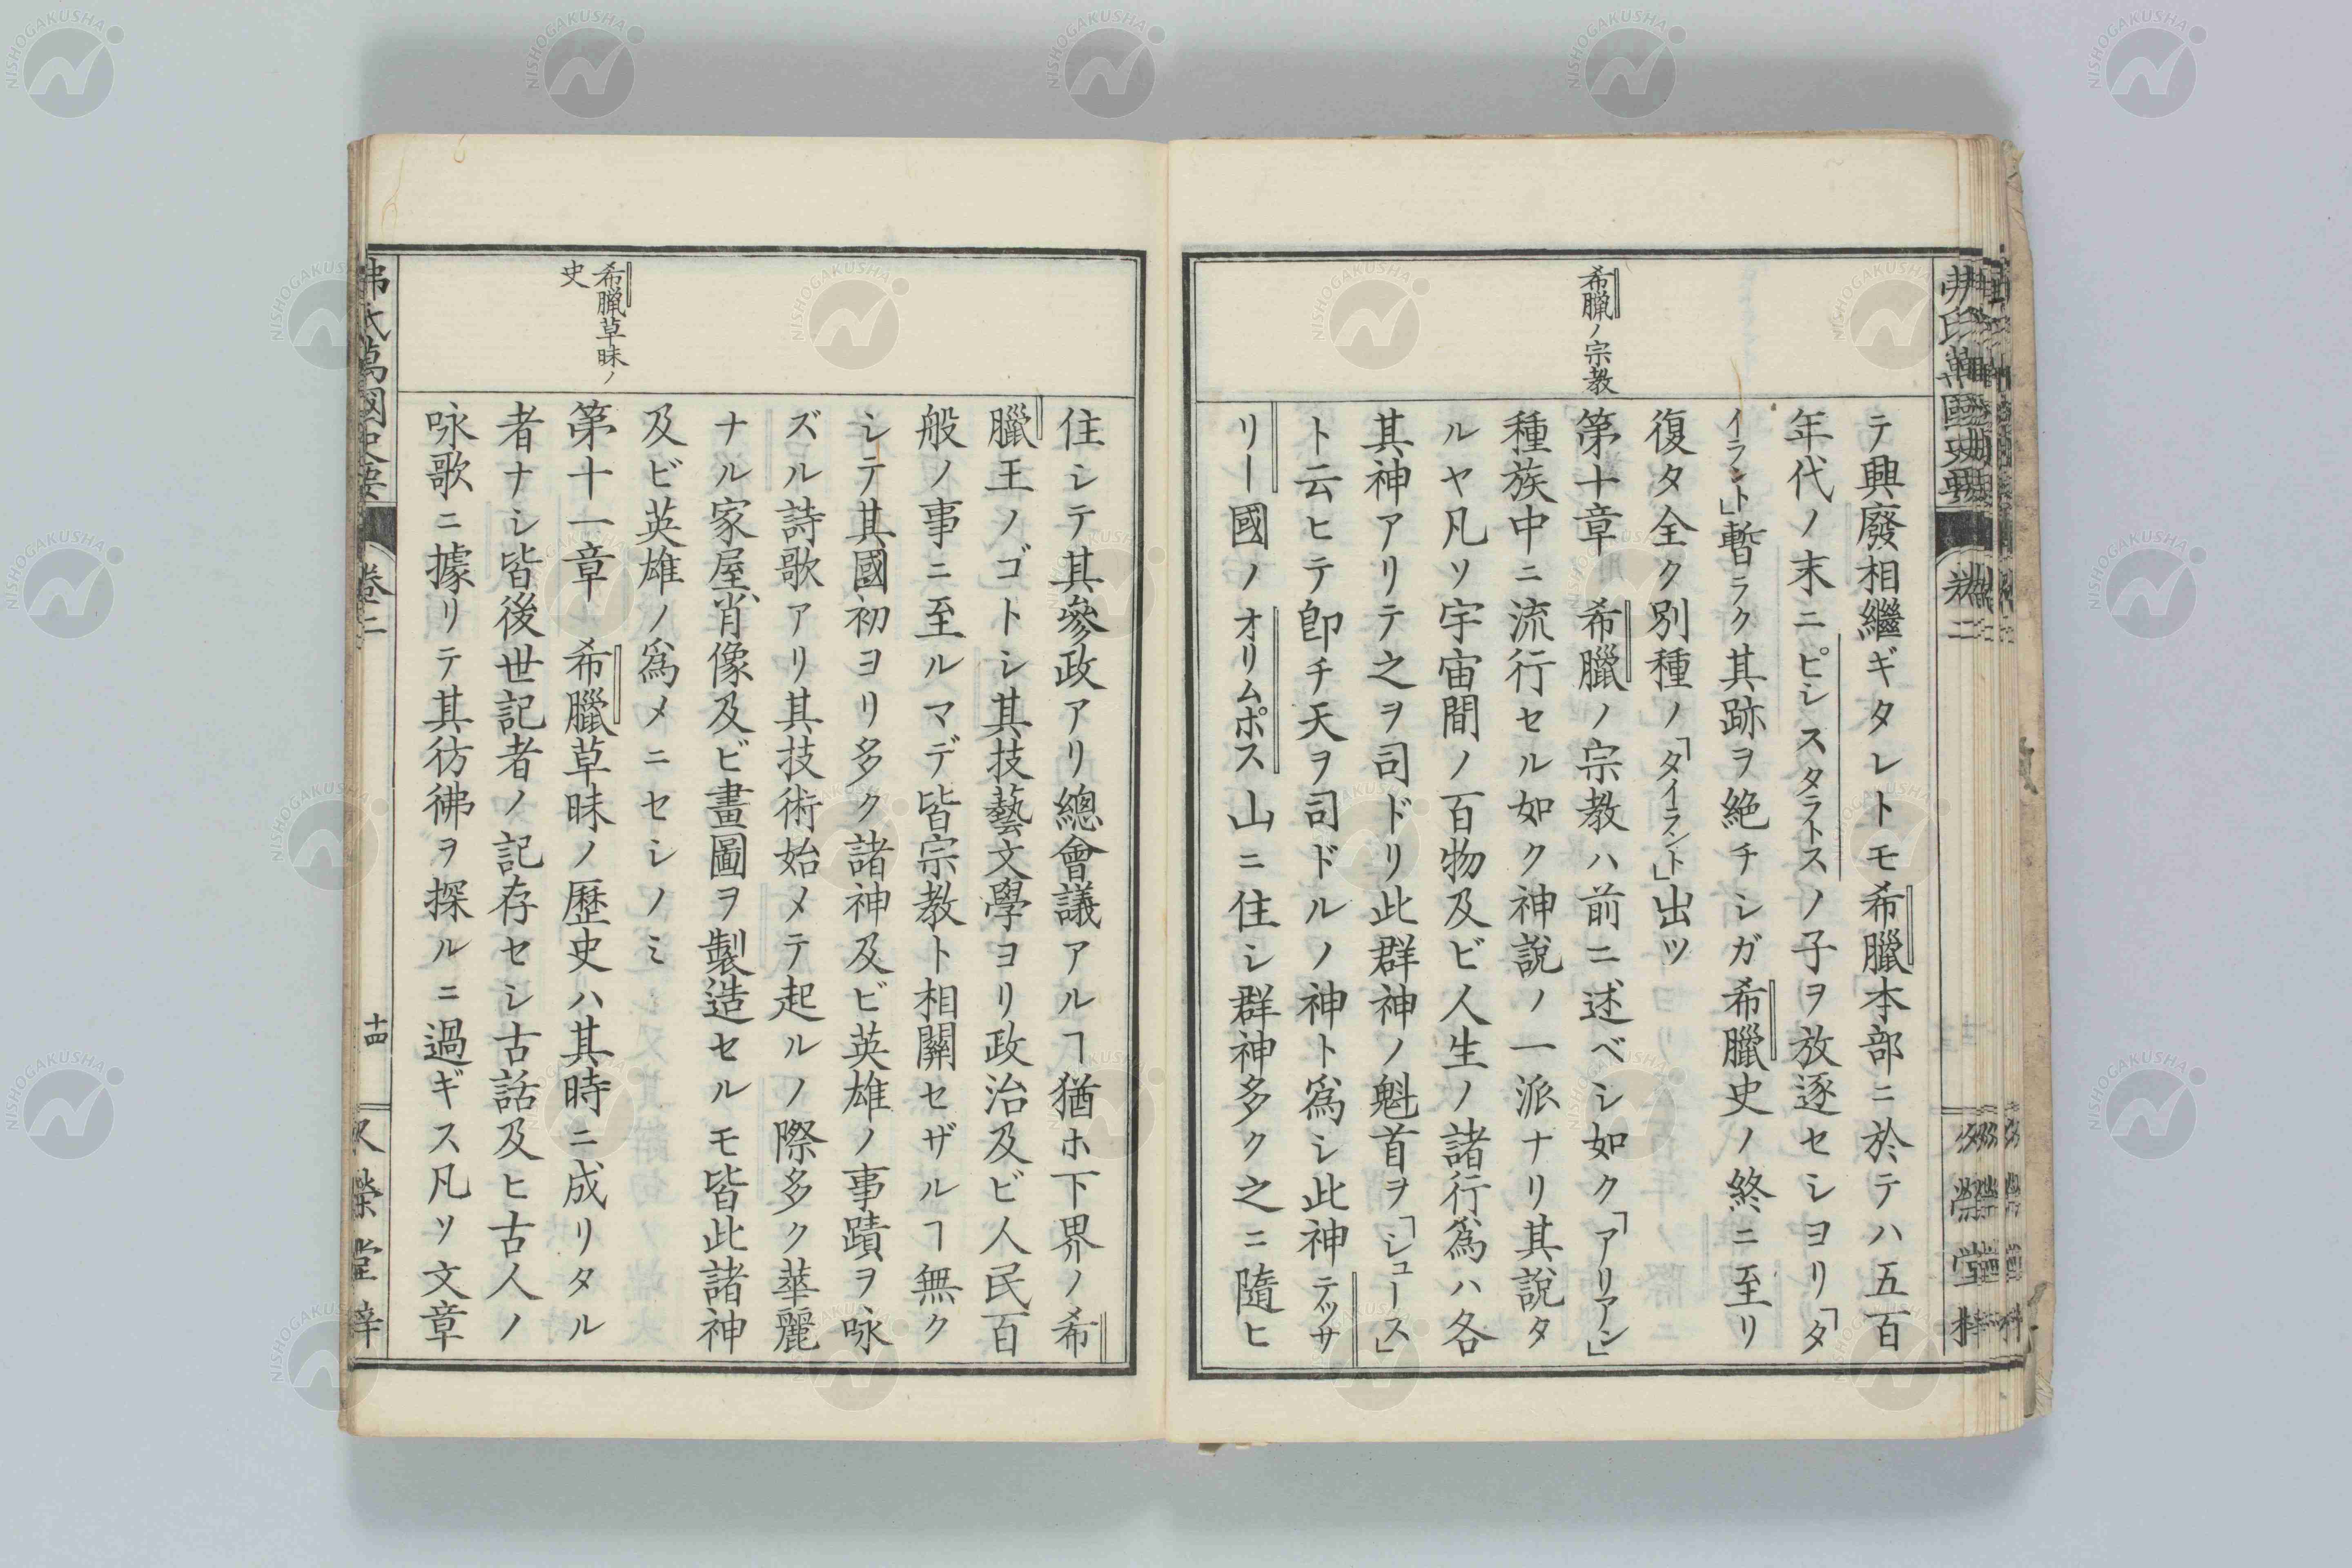 希臘ノ宗教
テ興廢相繼ギタレトモ希臘本部ニ於テハ五百
年代ノ末ニピシスタラトスノ子ヲ放逐セシヨリ「タ
イラント」暫ラク其跡ヲ絶チシガ希臘史ノ終ニ至リ
復タ全ク別種ノ「タイラント」出ツ
第十章 希臘ノ宗教ハ前ニ述ベシ如ク「アリアン」
種族中ニ流行セル如ク神説ノ一派ナリ其説タ
ルヤ凡ソ宇宙間ノ百物及ビ人生ノ諸行爲ハ各
其神アリテ之ヲ司ドリ此群神ノ魁首ヲ「シュース」
ト云ヒテ卽チ天ヲ司ドルノ神ト爲シ此神テッサ
リー國ノオリムポス山ニ住シ群神多ク之ニ隨ヒ
希臘草昧ノ
史
住シテ其參政アリ總會議アルヿ猶ホ下界ノ希
臘王ノゴトシ其技藝文學ヨリ政治及ビ人民百
般ノ事ニ至ルマデ皆宗教ト相關セザルヿ無ク
シテ其國初ヨリ多ク諸神及ビ英雄ノ事蹟ヲ咏
ズル詩歌アリ其技術始メテ起ルノ際多ク華麗
ナル家屋肖像及ビ畫圖ヲ製造セルモ皆此諸神
及ビ英雄ノ爲メニセシノミ
第十一章 希臘草昧ノ歷史ハ其時ニ成リタル
者ナシ皆後世記者ノ記存セシ古話及ヒ古人ノ
咏歌ニ據リテ其彷彿ヲ探ルニ過ギス凡ソ文章
弗氏萬國史要 卷二 十四 又榮堂梓
NISHOGAKUSHA